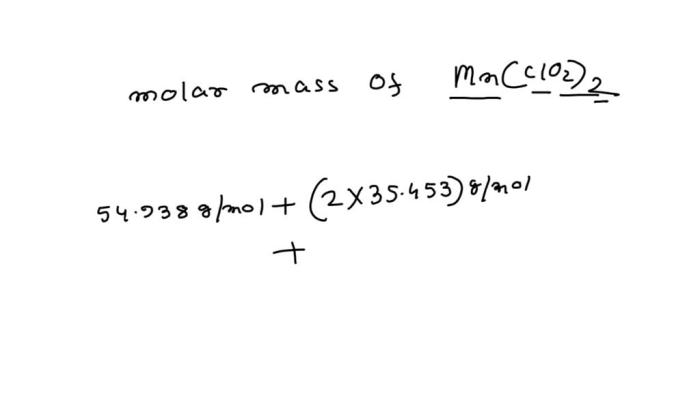 molar mass of Mn(ClO2)2
54.938 g/mol + (2×35.453) g/mol
+